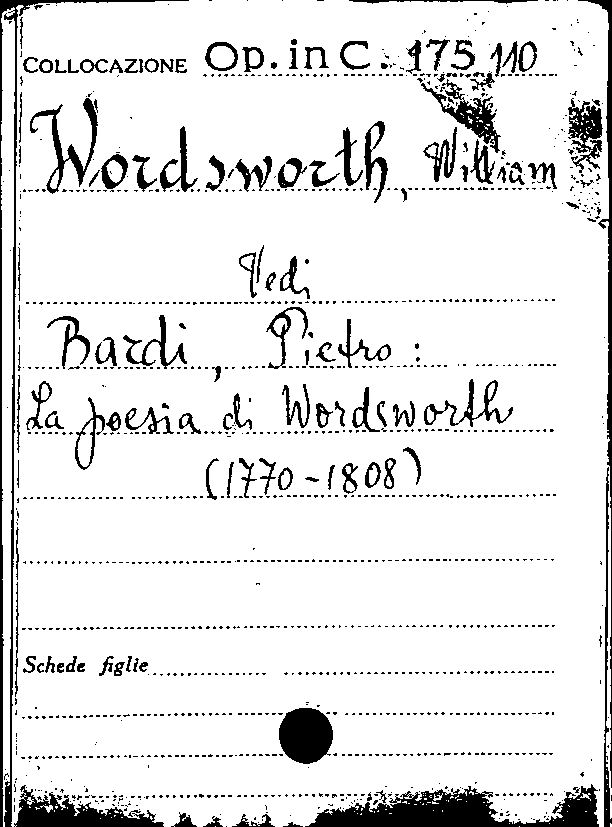 COLLOCAZIONE Op. in C. 175 110
Wordsworth, William
Vedi
Bardi, Pietro :
La poesia di Wordsworth
(1770-1808)
Schede figlie